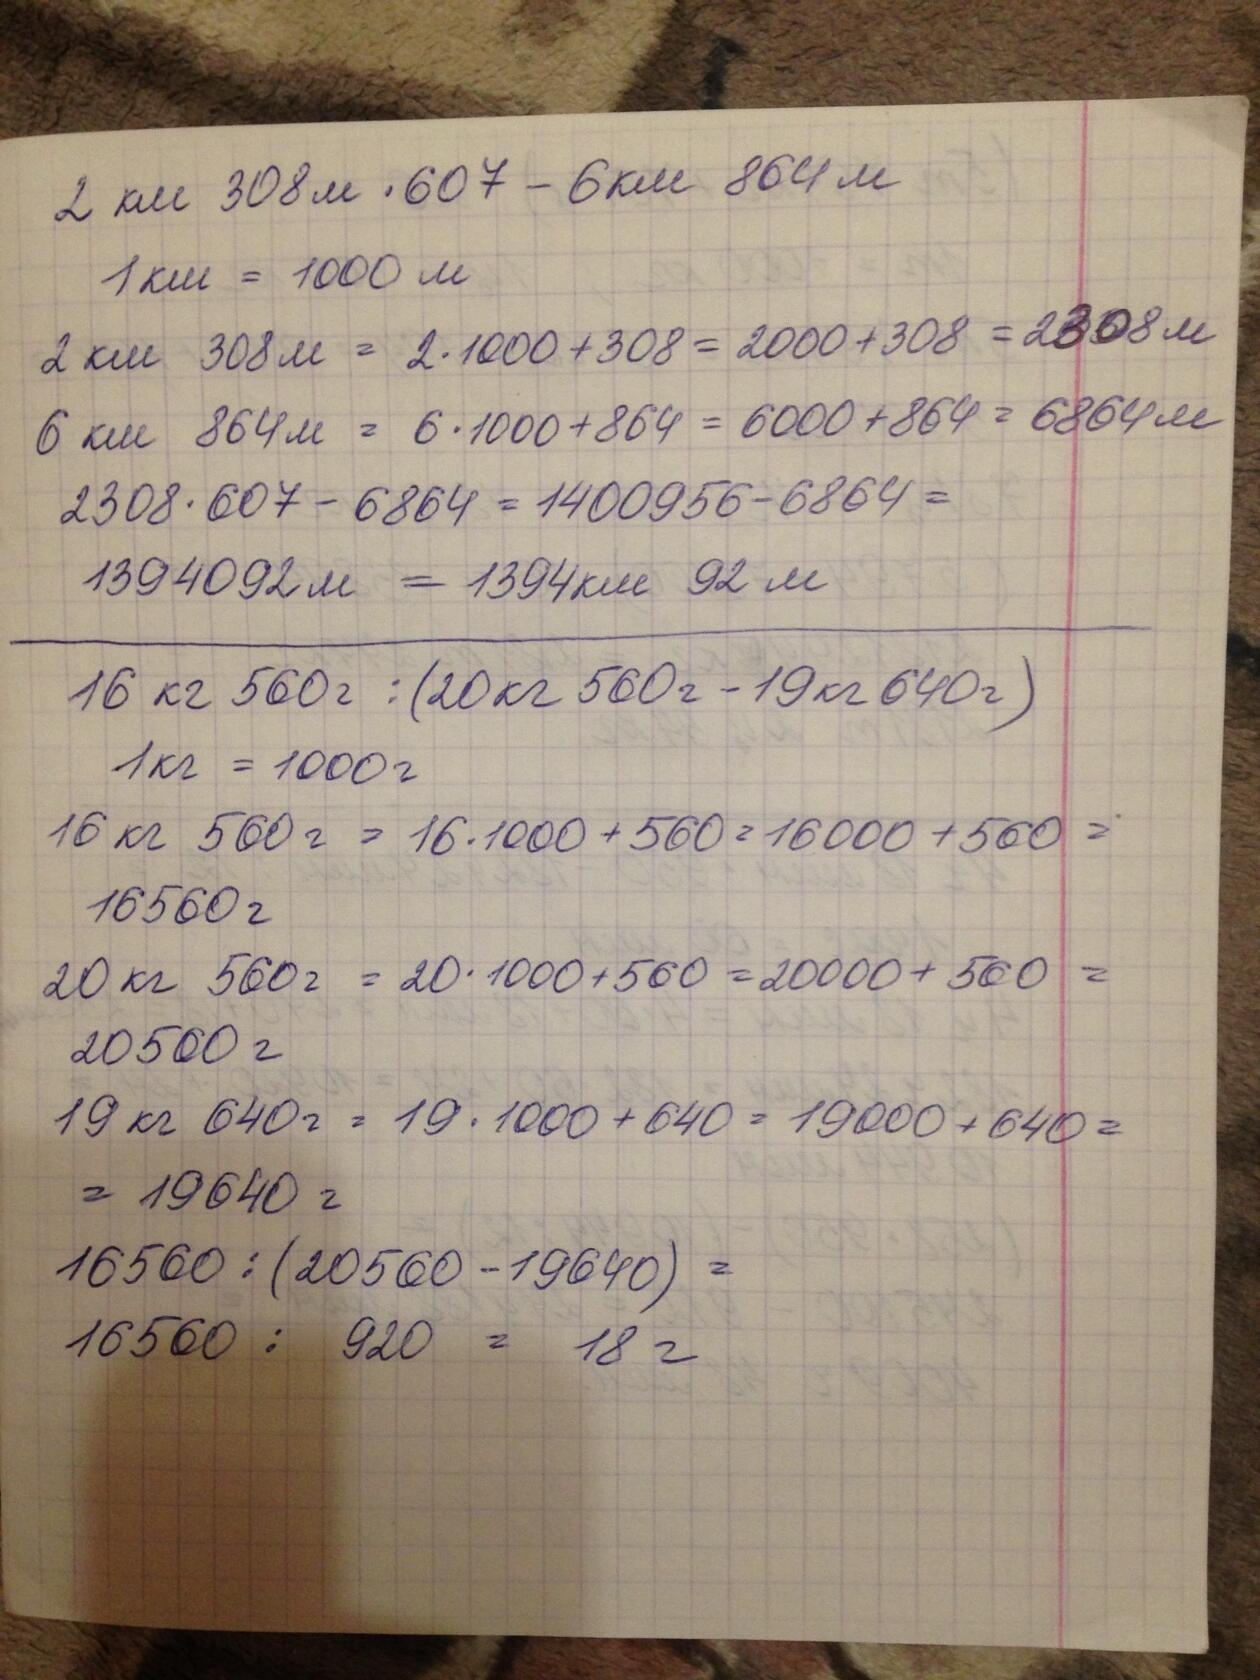 2 км 308м · 607 - 6км 864м
1км = 1000 м
2 км 308м = 2·1000+308 = 2000+308 = 2308м
6 км 864м = 6·1000+864 = 6000+864 = 6864м
2308·607 - 6864 = 1400956 - 6864 =
1394092м = 1394км 92 м
16 кг 560г : (20кг 560г - 19кг 640г)
1кг = 1000г
16 кг 560г = 16·1000 + 560 = 16000 + 560 =
16560г
20 кг 560г = 20·1000+560 = 20000 + 560 =
20560 г
19 кг 640г = 19·1000 + 640 = 19000 + 640 =
= 19640 г
16560 : (20560 - 19640) =
16560 : 920 = 18 г